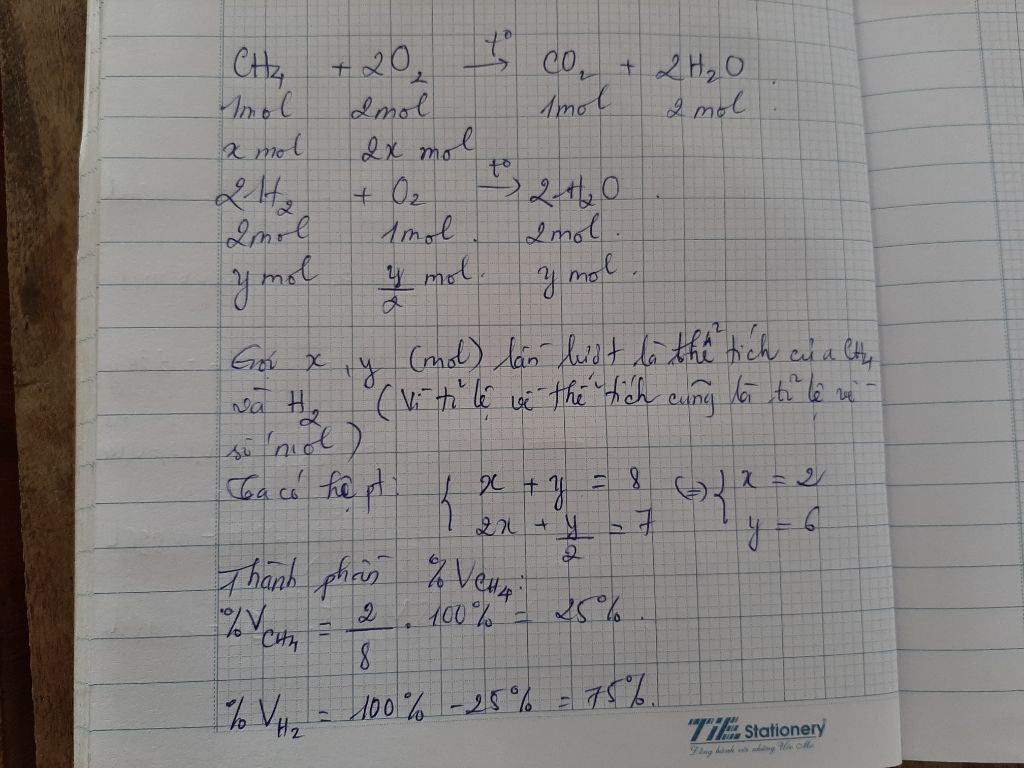 CH₄ + 2O₂ →(t°) CO₂ + 2H₂O.
1mol 2mol 1mol 2mol.
x mol 2x mol
2H₂ + O₂ →(t°) 2H₂O.
2mol 1mol. 2mol.
y mol y/2 mol. y mol.
Gọi x, y (mol) lần lượt là thể tích của CH₄
và H₂ (Vì tỉ lệ về thể tích cũng là tỉ lệ về
số mol)
Ta có hệ pt: { x + y = 8 (=) { x = 2
2x + y/2 = 7 y = 6
Thành phần %V_CH₄:
%V_CH₄ = 2/8 . 100% = 25%.
%V_H₂ = 100% - 25% = 75%.
TiE Stationery
Đồng hành với những Ước Mơ